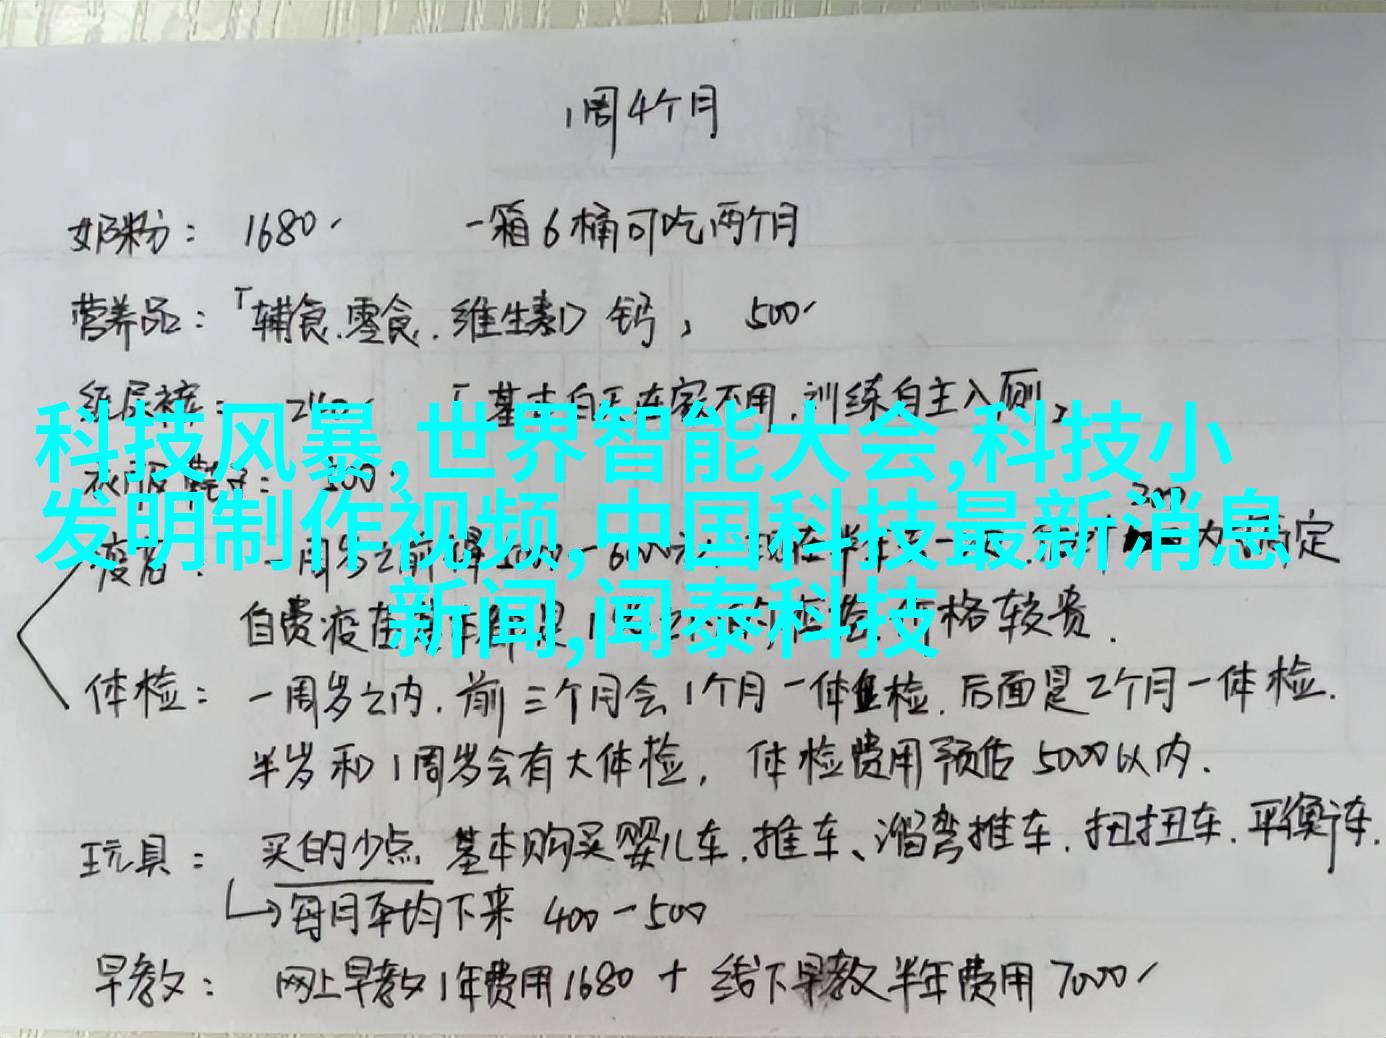 1周4个月
奶粉： 1680 一箱6桶可吃两个月
营养品：「辅食.零食.维生素D 钙， 500
纸尿裤： 「基本白天在家不用.训练自主入厕」
科技风暴,世界智能大会,科技小
衣服鞋子： 300
发明制作视频,中国科技最新消息
疫苗： 一周岁之前
新闻,闻泰科技
自费疫苗 价格较贵.
体检： 一周岁之内.前三个月会1个月一体检.后面是2个月一体检.
半岁和1周岁会有大体检， 体检费用预估5000以内.
玩具： 买的少点 基本购买婴儿车.推车、溜弯推车.扭扭车.平衡车.
每月平均下来 400-500
早教： 网上早教1年费用1680 + 线下早教半年费用7000